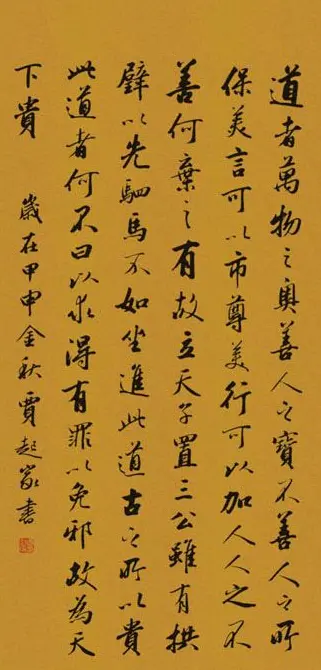 道者萬物之奧善人之寶不善人之所
保美言可以市尊美行可以加人人之不
善何棄之有故立天子置三公雖有拱
璧以先駟馬不如坐進此道古之所以貴
此道者何不曰以求得有罪以免邪故為天
下貴
歲在甲申金秋賈起家書